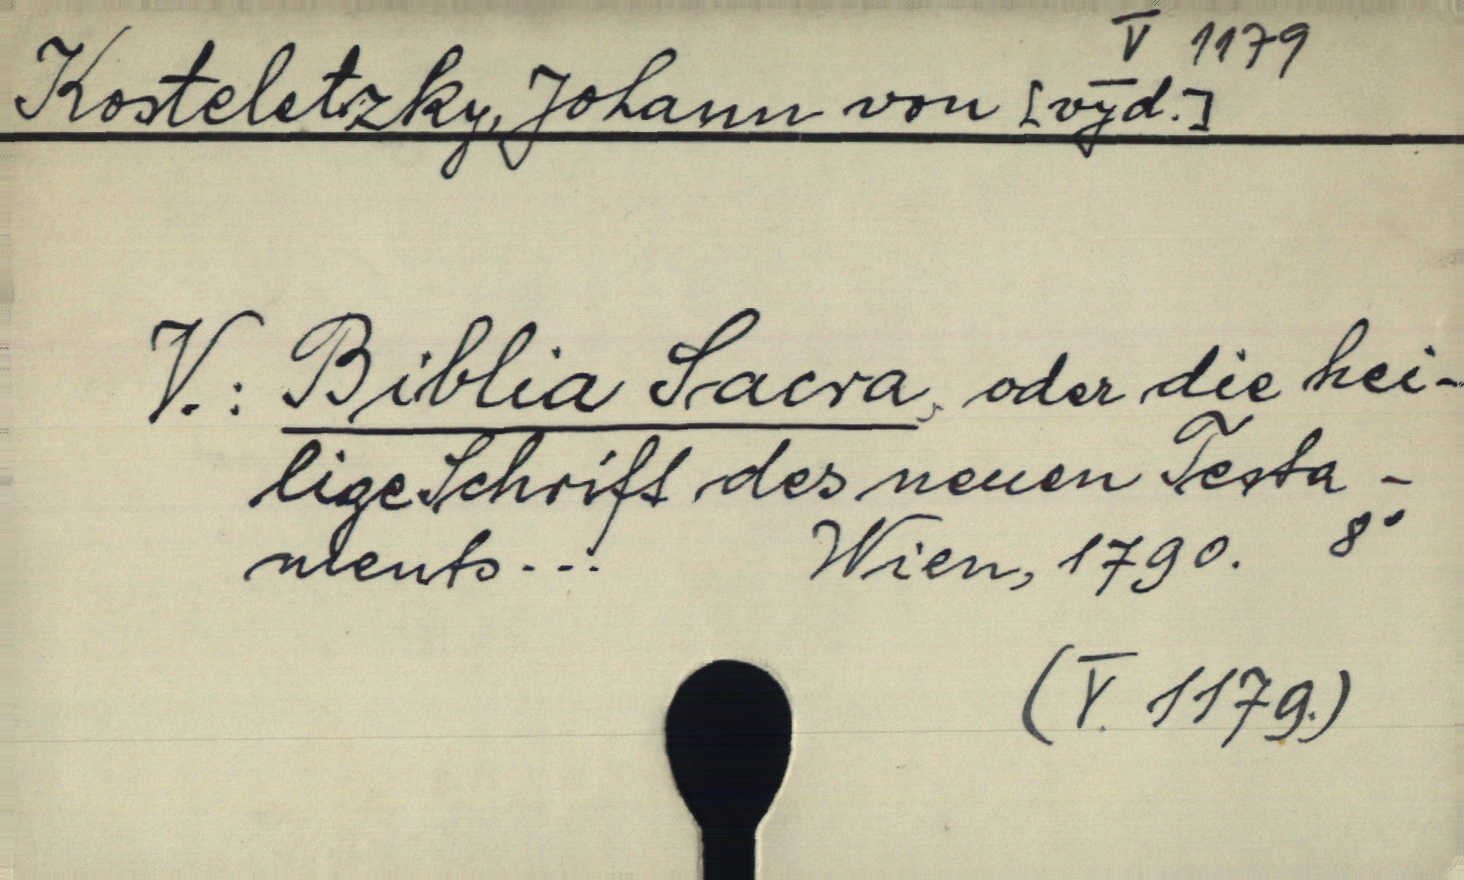 V 1179
Kosteletzky, Johann von [vyd.]
V.: Biblia Sacra, oder die hei-
lige Schrift des neuen Testa-
ments... Wien, 1790. 8°
(V. 1179.)